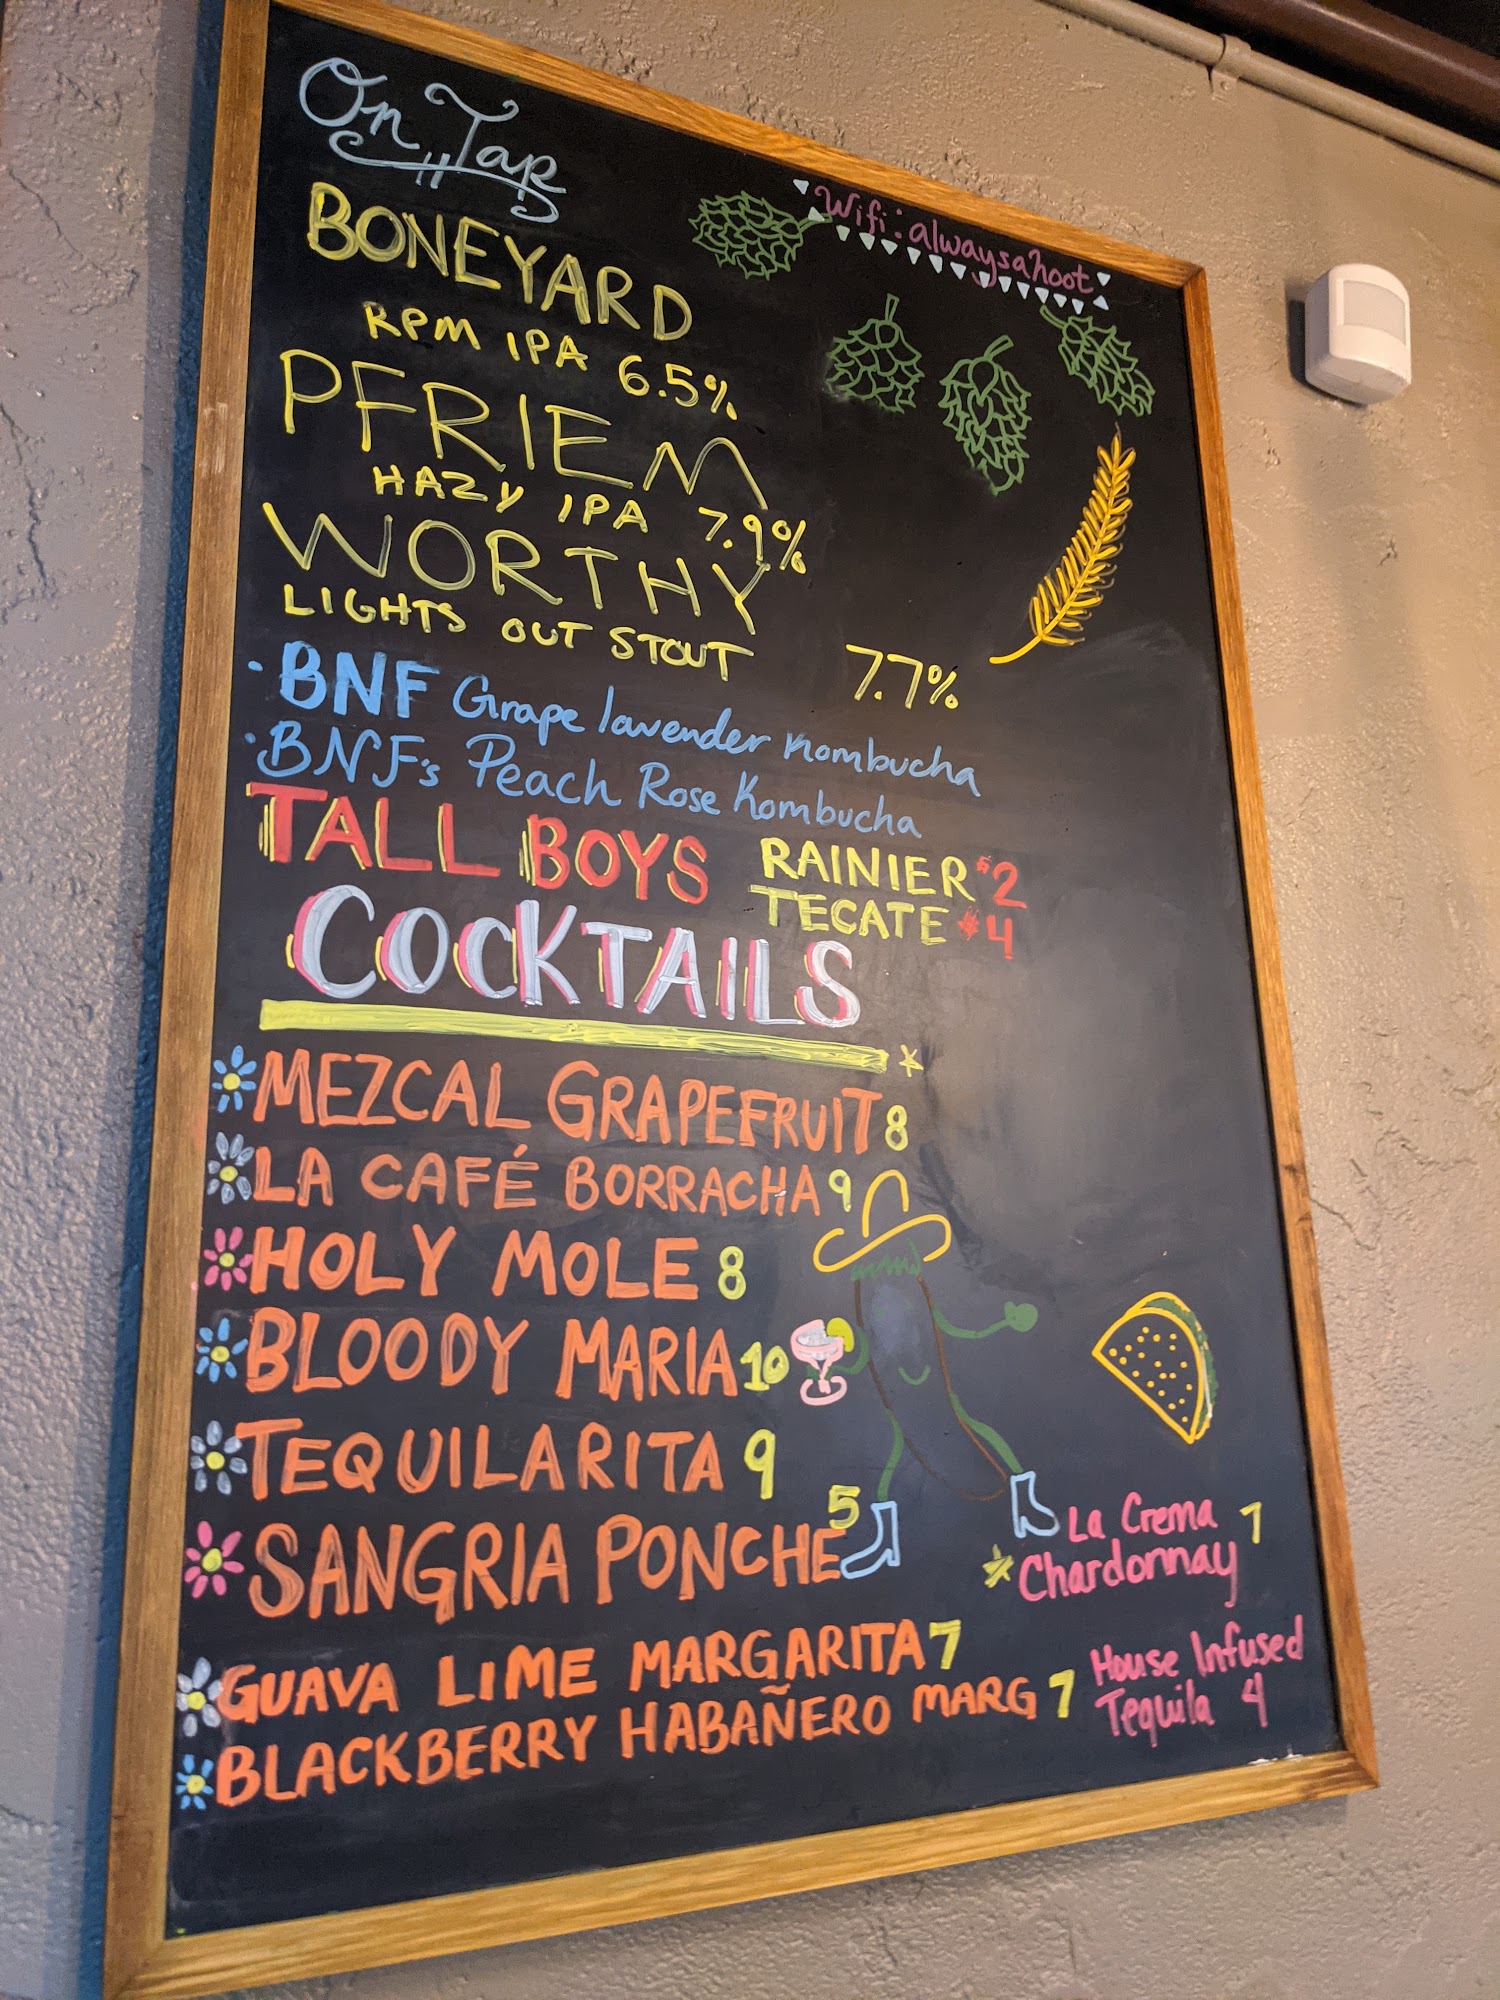 On Tap
Wifi: alwaysahoot
BONEYARD
RPM IPA 6.5%
PFRIEM
HAZY IPA 7.9%
WORTHY
LIGHTS OUT STOUT 7.7%
· BNF Grape lavender Kombucha
· BNF's Peach Rose Kombucha
TALL BOYS
RAINIER $2
TECATE $4
COCKTAILS
MEZCAL GRAPEFRUIT 8
LA CAFÉ BORRACHA 9
HOLY MOLE 8
BLOODY MARIA 10
TEQUILARITA 9
SANGRIA PONCHE 5
GUAVA LIME MARGARITA 7
BLACKBERRY HABAÑERO MARG 7
La Crema 7
Chardonnay
House Infused
Tequila 4